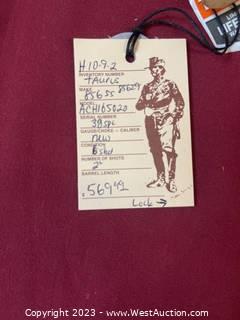 LIFE
H10-9-2
INVENTORY NUMBER
TAURUS
MAKE
856SS 85629
MODEL
ACH165020
SERIAL NUMBER
38 spl
GAUGE/CHOKE - CALIBER
new
CONDITION
6 shot
NUMBER OF SHOTS
2"
BARREL LENGTH
$ 569.42
Lock →
Copyright © 2023 - WestAuction.com